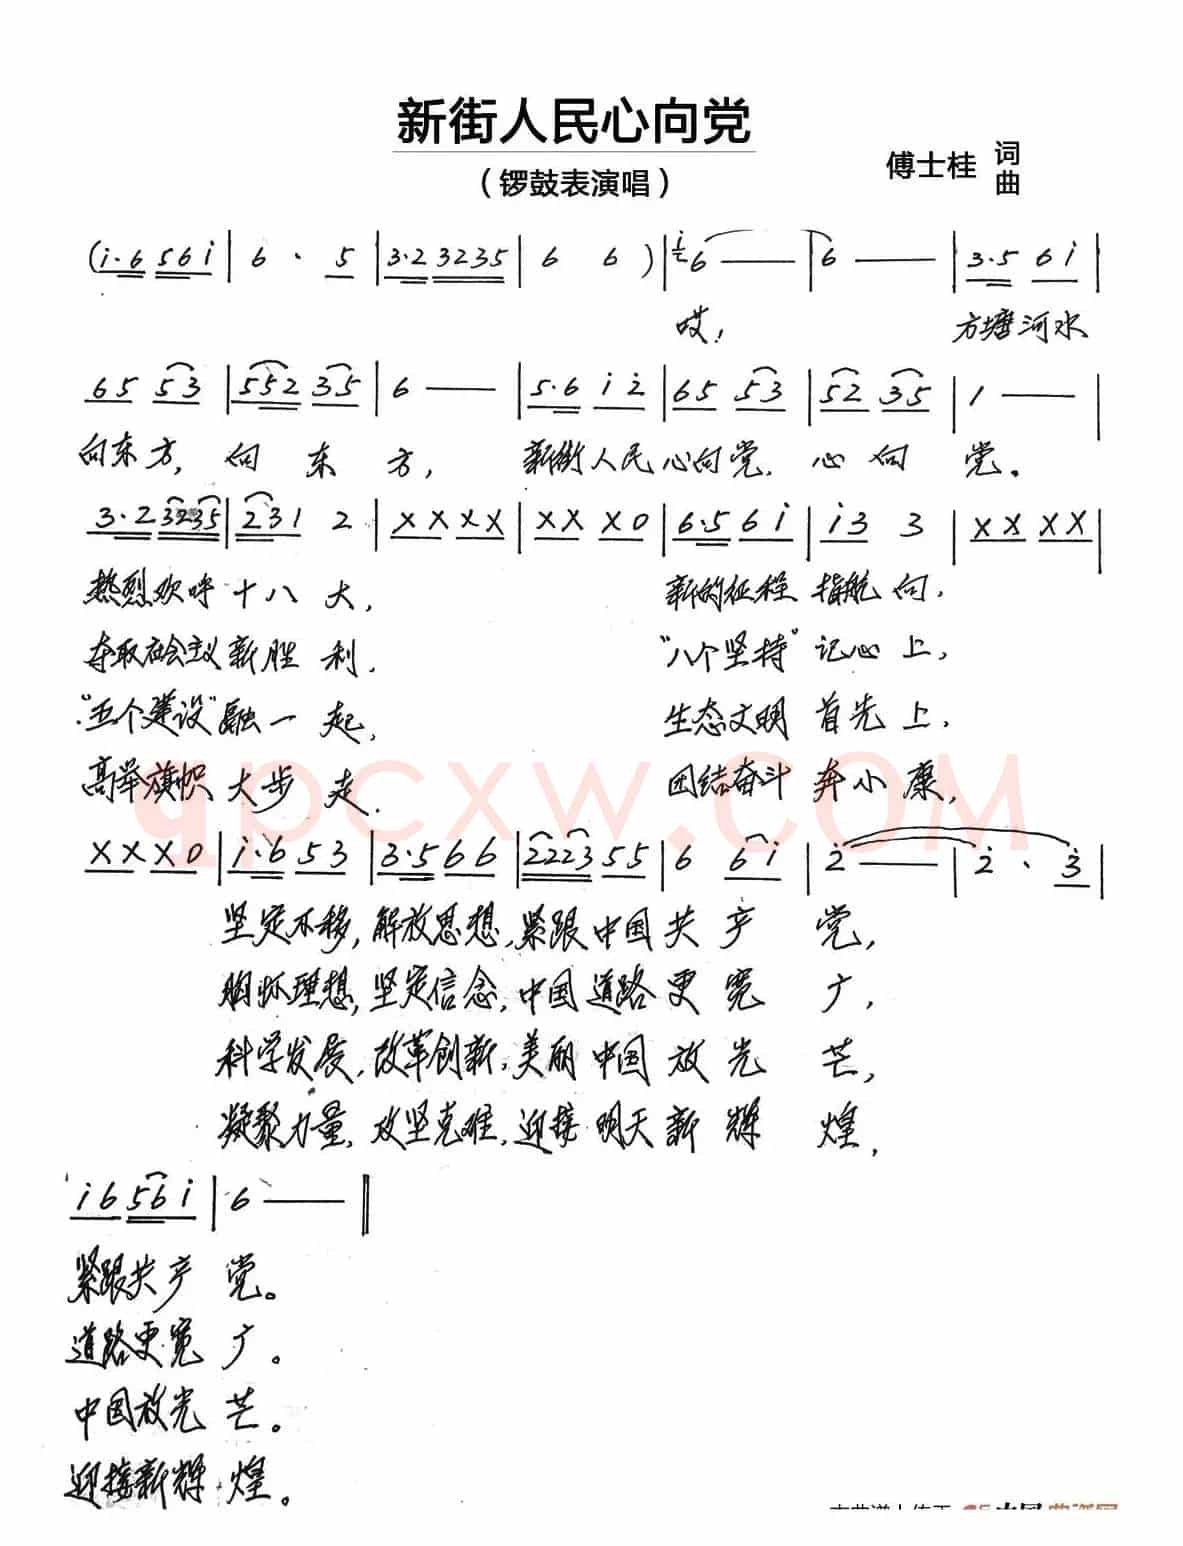 新街人民心向党
（锣鼓表演唱）
傅士桂 词
曲
(i·6 5 6 i | 6 · 5 | 3·2 3235 | 6 6 ) | i6 — | 6 — | 3·5 6 i |
哎！ 方塘河水
65 53 | 552 35 | 6 — | 5·6 i 2 | 65 53 | 52 35 | 1 — |
向东方，向 东 方， 新街人民心向党，心 向 党。
3·2 3235 | 231 2 | XX XX | XX X0 | 6·5 6i | i3 3 | XX XX |
热烈欢呼十八大， 新的征程指航向，
夺取社会主义新胜利， “八个坚持”记心上，
“五个建设”融一起， 生态文明首先上，
高举旗帜大步走． 团结奋斗奔小康，
qpcxw.com
XX X0 | i·6 53 | 3·5 66 | 2223 55 | 6 6i | 2 — | 2 · 3 |
坚定不移，解放思想，紧跟中国共产党，
胸怀理想，坚定信念，中国道路更宽广，
科学发展，改革创新，美丽中国放光芒，
凝聚力量，攻坚克难，迎接明天新辉煌，
i6 56i | 6 — ‖
紧跟共产党。
道路更宽广。
中国放光芒。
迎接新辉煌。